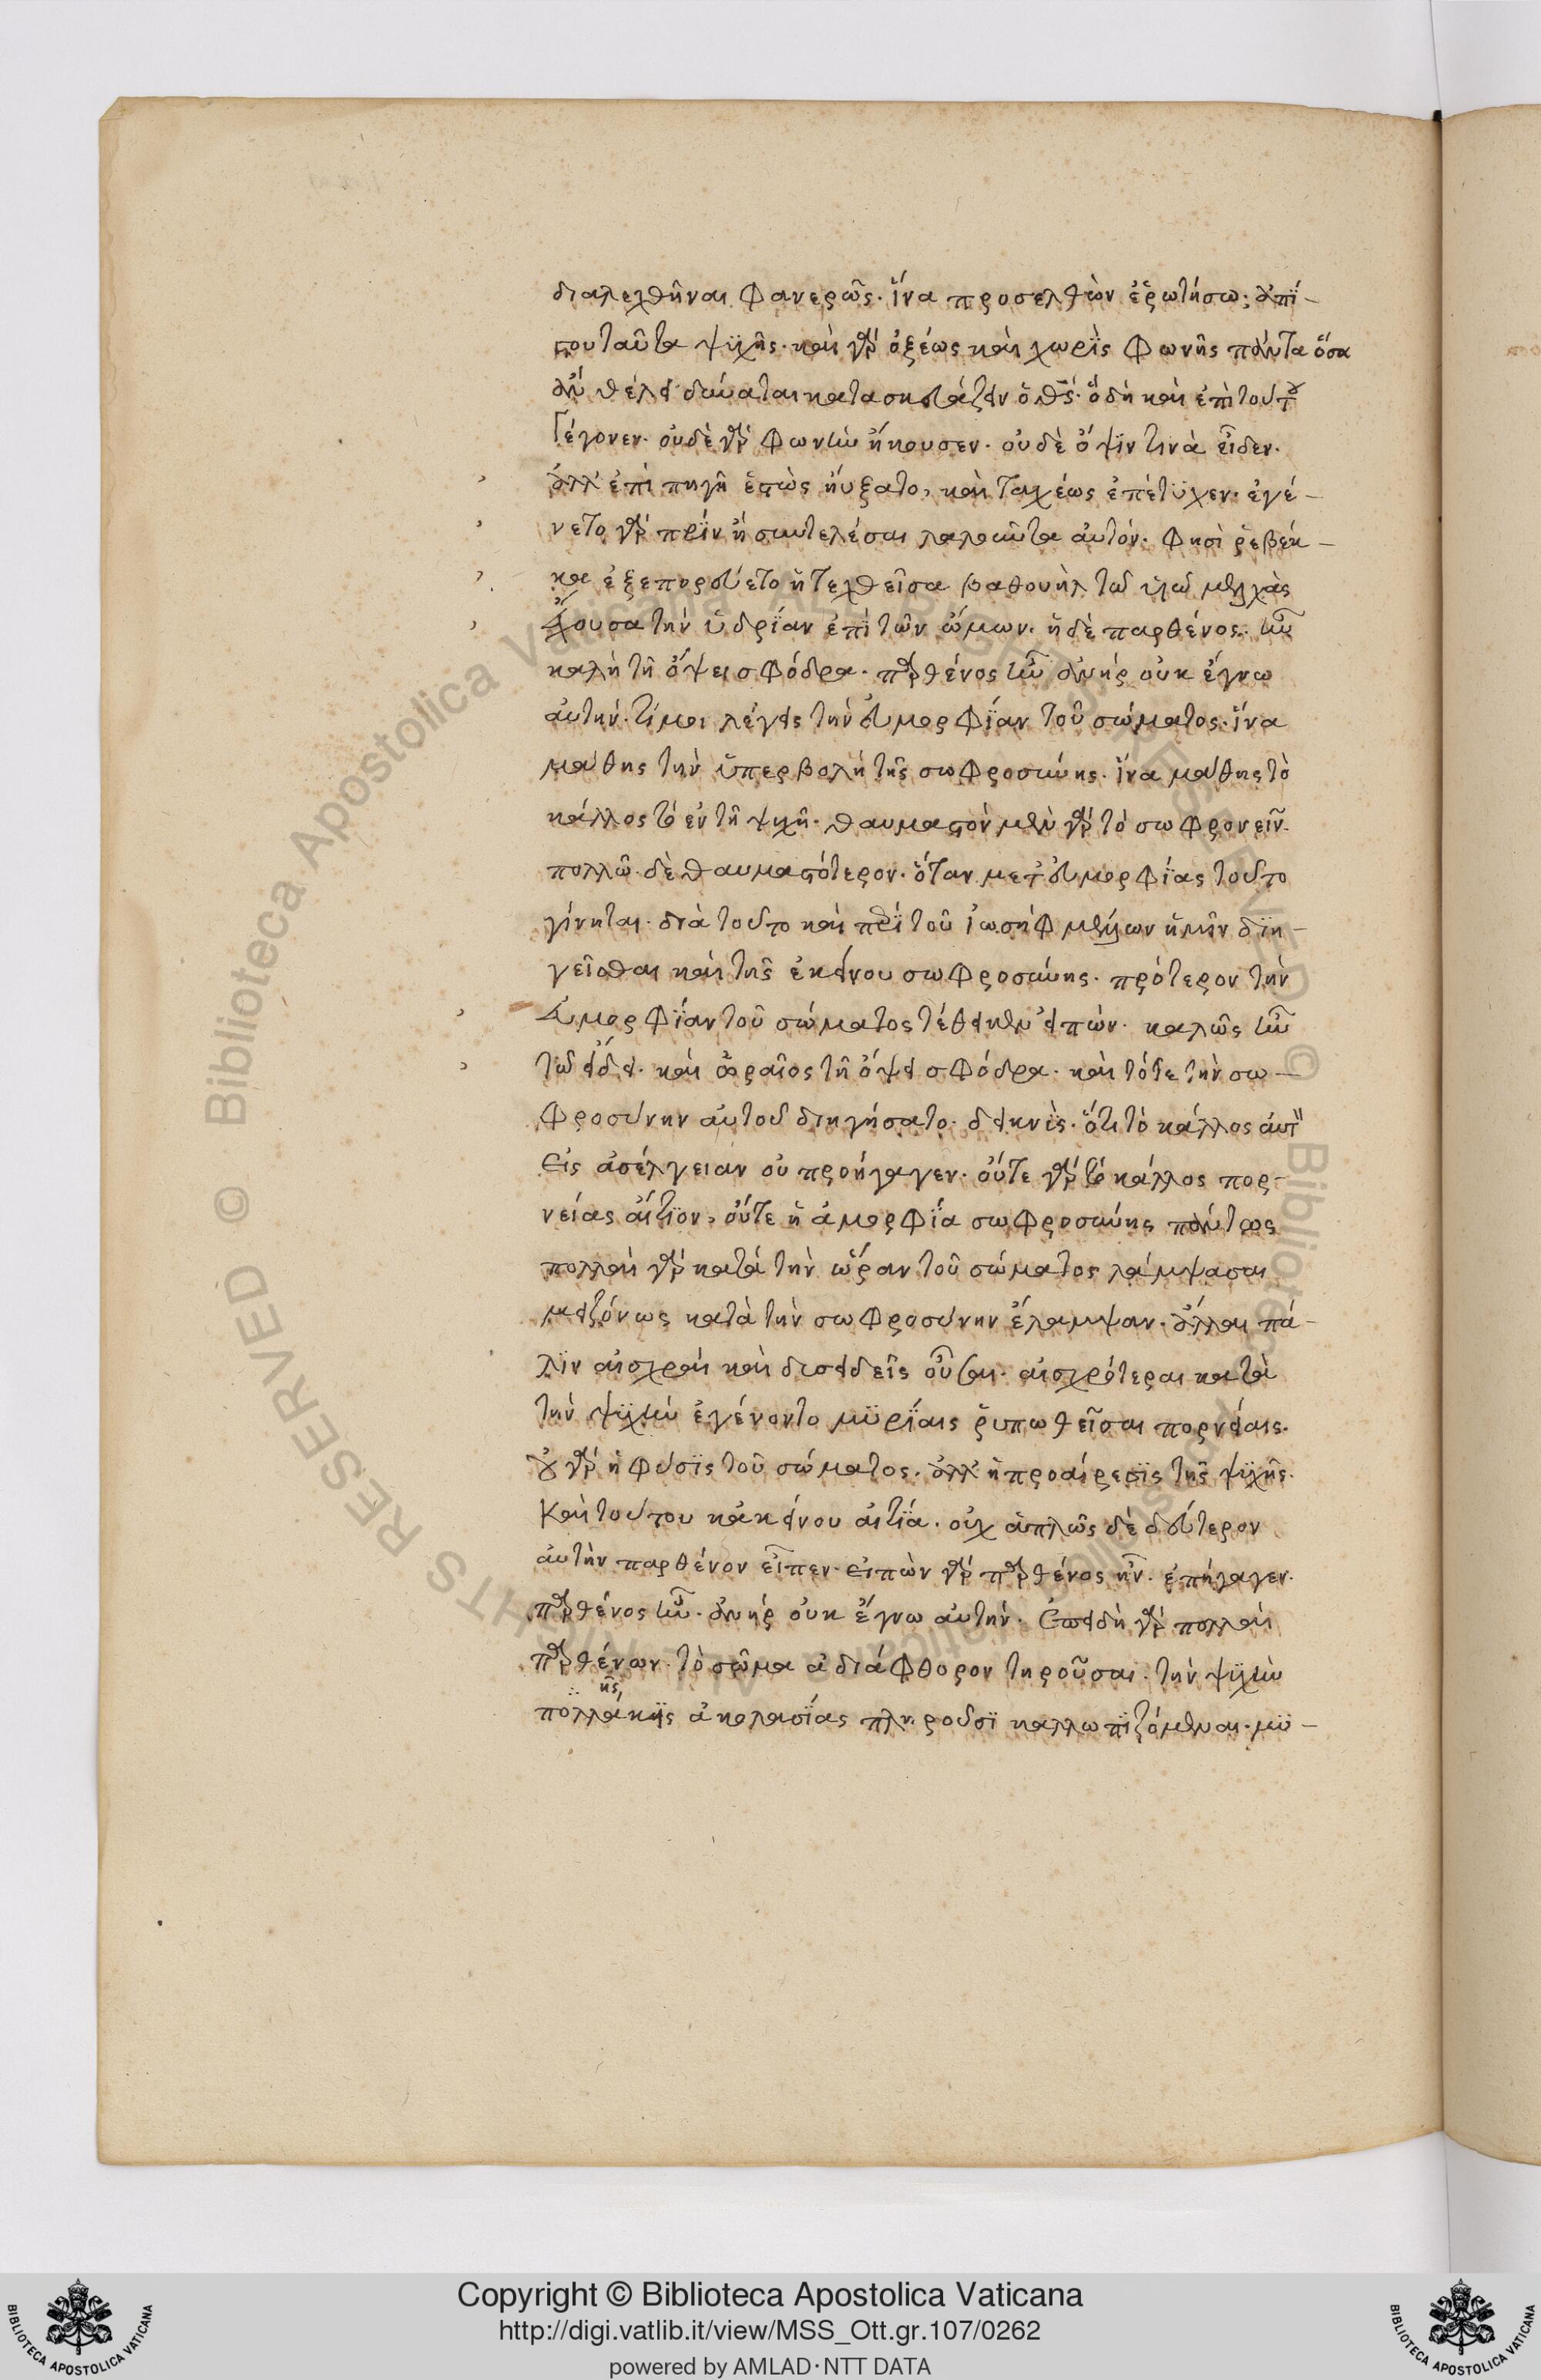 διαλεχθῆναι φανερῶς. ἵνα προσελθὼν ἐρωτήσω; ἀπί-
στου ταῦτα ψυχῆς. καὶ γὰρ ὀξέως καὶ χωρὶς φωνῆς πάντα ὅσα
ἂν θέλει δύναται κατασκευάζειν ὁ θς. ὃ δὴ καὶ ἐπὶ τούτου
γέγονεν. οὐδὲ γὰρ φωνὴν ἤκουσεν. οὐδὲ ὄψιν τινὰ εἶδεν.
ἀλλ' ἐπὶ πηγῆ ἑστὼς ηὔξατο, καὶ ταχέως ἐπέτυχεν. ἐγέ-
νετο γὰρ πρὶν ἢ συντελέσαι λαλοῦντα αὐτόν. φησὶ ῥεβέκ-
κα ἐξεπορεύετο ἡ τεχθεῖσα βαθουὴλ τῶ υἱῶ μελχὰς
ἔχουσα τὴν ὑδρίαν ἐπὶ τῶν ὤμων. ἡ δὲ παρθένος. ἦν
καλὴ τῆ ὄψει σφόδρα. παρθένος ἦν ἀνὴρ οὐκ ἔγνω
αὐτήν. τί μοι λέγεις τὴν εὐμορφίαν τοῦ σώματος. ἵνα
μάθης τὴν ὑπερβολὴ τῆς σωφροσύνης. ἵνα μάθης τὸ
κάλλος τὸ ἐν τῆ ψυχῆ. θαυμαστὸν μὲν γὰρ τὸ σωφρονεῖν.
πολλῶ δὲ θαυμαστότερον. ὅταν μετ' εὐμορφίας τοῦτο
γίνηται. διὰ τοῦτο καὶ περὶ τοῦ ἰωσὴφ μέλλων ἡμῖν διη-
γεῖσθαι καὶ τῆς ἐκείνου σωφροσύνης. πρότερον τὴν
εὐμορφίαν τοῦ σώματος τέθεικεν εἰπών. καλῶς ἦν
τῶ εἴδει. καὶ ὡραῖος τῆ ὄψει σφόδρα. καὶ τότε τὴν σω-
φροσύνην αὐτοῦ διηγήσατο. δεικνὺς. ὅτι τὸ κάλλος αὐτὸν
εἰς ἀσέλγειαν οὐ προήγαγεν. οὔτε γὰρ τὸ κάλλος πορ-
νείας αἴτιον, οὔτε ἡ ἀμορφία σωφροσύνης πάντως
πολλαὶ γὰρ κατὰ τὴν ὥραν τοῦ σώματος λάμψασαι
μειζόνως κατὰ τὴν σωφροσύνην ἔλαμψαν. ἄλλαι πά-
λιν αἰσχραὶ καὶ δυσειδεῖς οὖσαι. αἰσχρότεραι κατὰ
τὴν ψυχὴν ἐγένοντο μυρίαις ῥυπωθεῖσαι πορνείαις.
οὐ γὰρ ἡ φύσις τοῦ σώματος. ἀλλ' ἡ προαίρεσις τῆς ψυχῆς.
καὶ τούτου κἀκείνου αἰτία. οὐχ ἁπλῶς δὲ δεύτερον
αὐτὴν παρθένον εἶπεν. εἰπὼν γὰρ παρθένος ἦν. ἐπήγαγεν.
παρθένος ἦν. ἀνὴρ οὐκ ἔγνω αὐτήν. ἐπειδὴ γὰρ πολλαὶ
παρθένων. τὸ σῶμα ἀδιάφθορον τηροῦσαι. τὴν ψυχὴν
πολλάκις ἀκολασίας πληροῦσι καλλωπιζόμεναι. μυ-
Copyright © Biblioteca Apostolica Vaticana
http://digi.vatlib.it/view/MSS_Ott.gr.107/0262
powered by AMLAD·NTT DATA